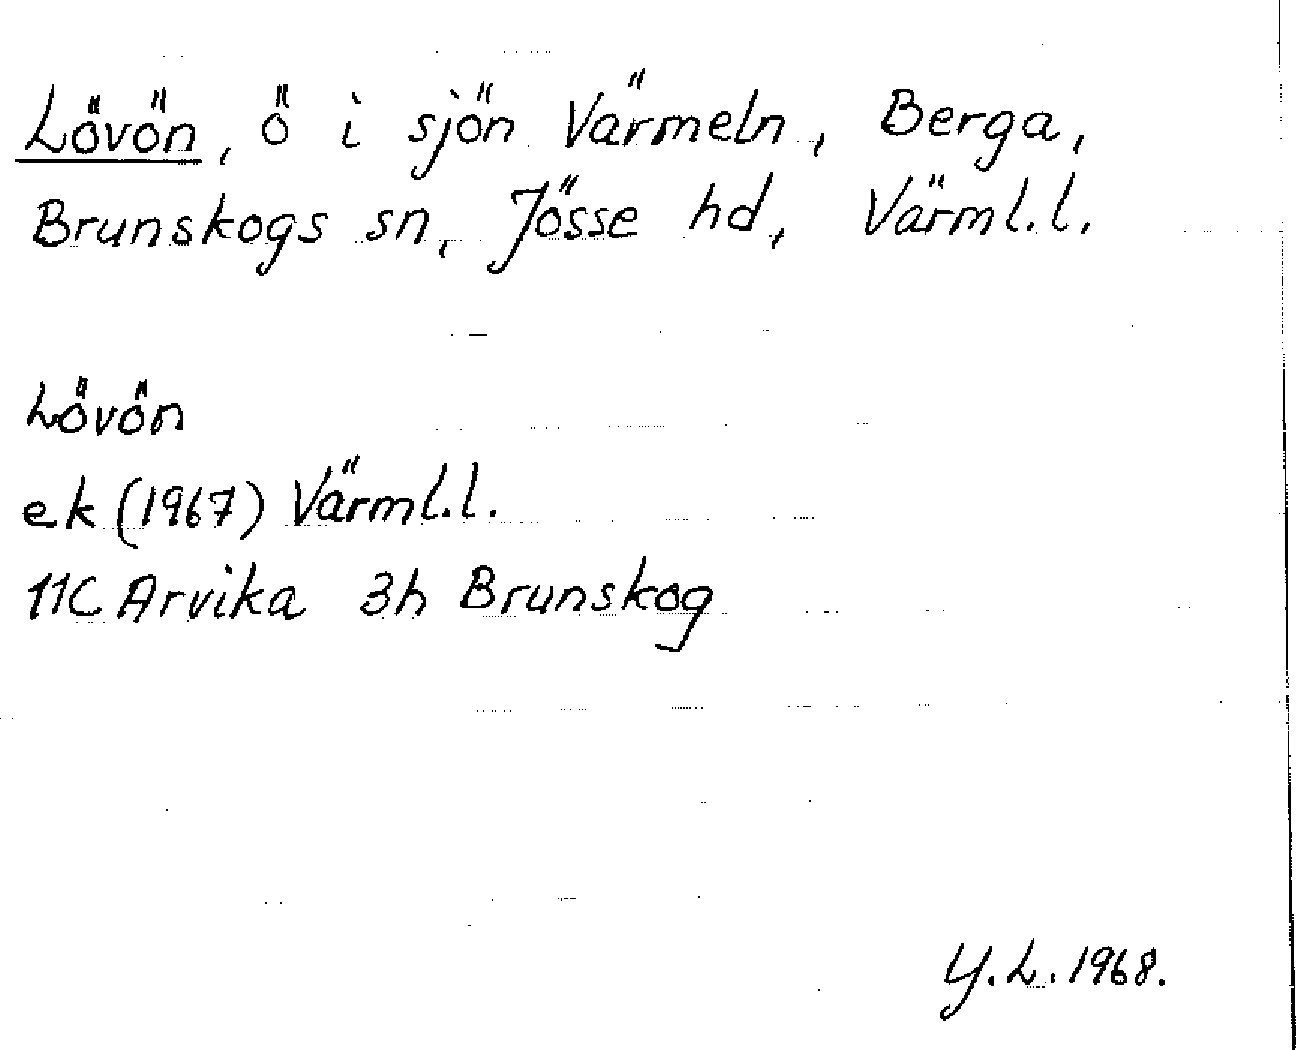 Lövön, ö i sjön Värmeln, Berga,
Brunskogs sn, Jösse hd, Värml.l.
Lövön
ek (1967) Värml.l.
11C Arvika 3h Brunskog
Y.L. 1968.